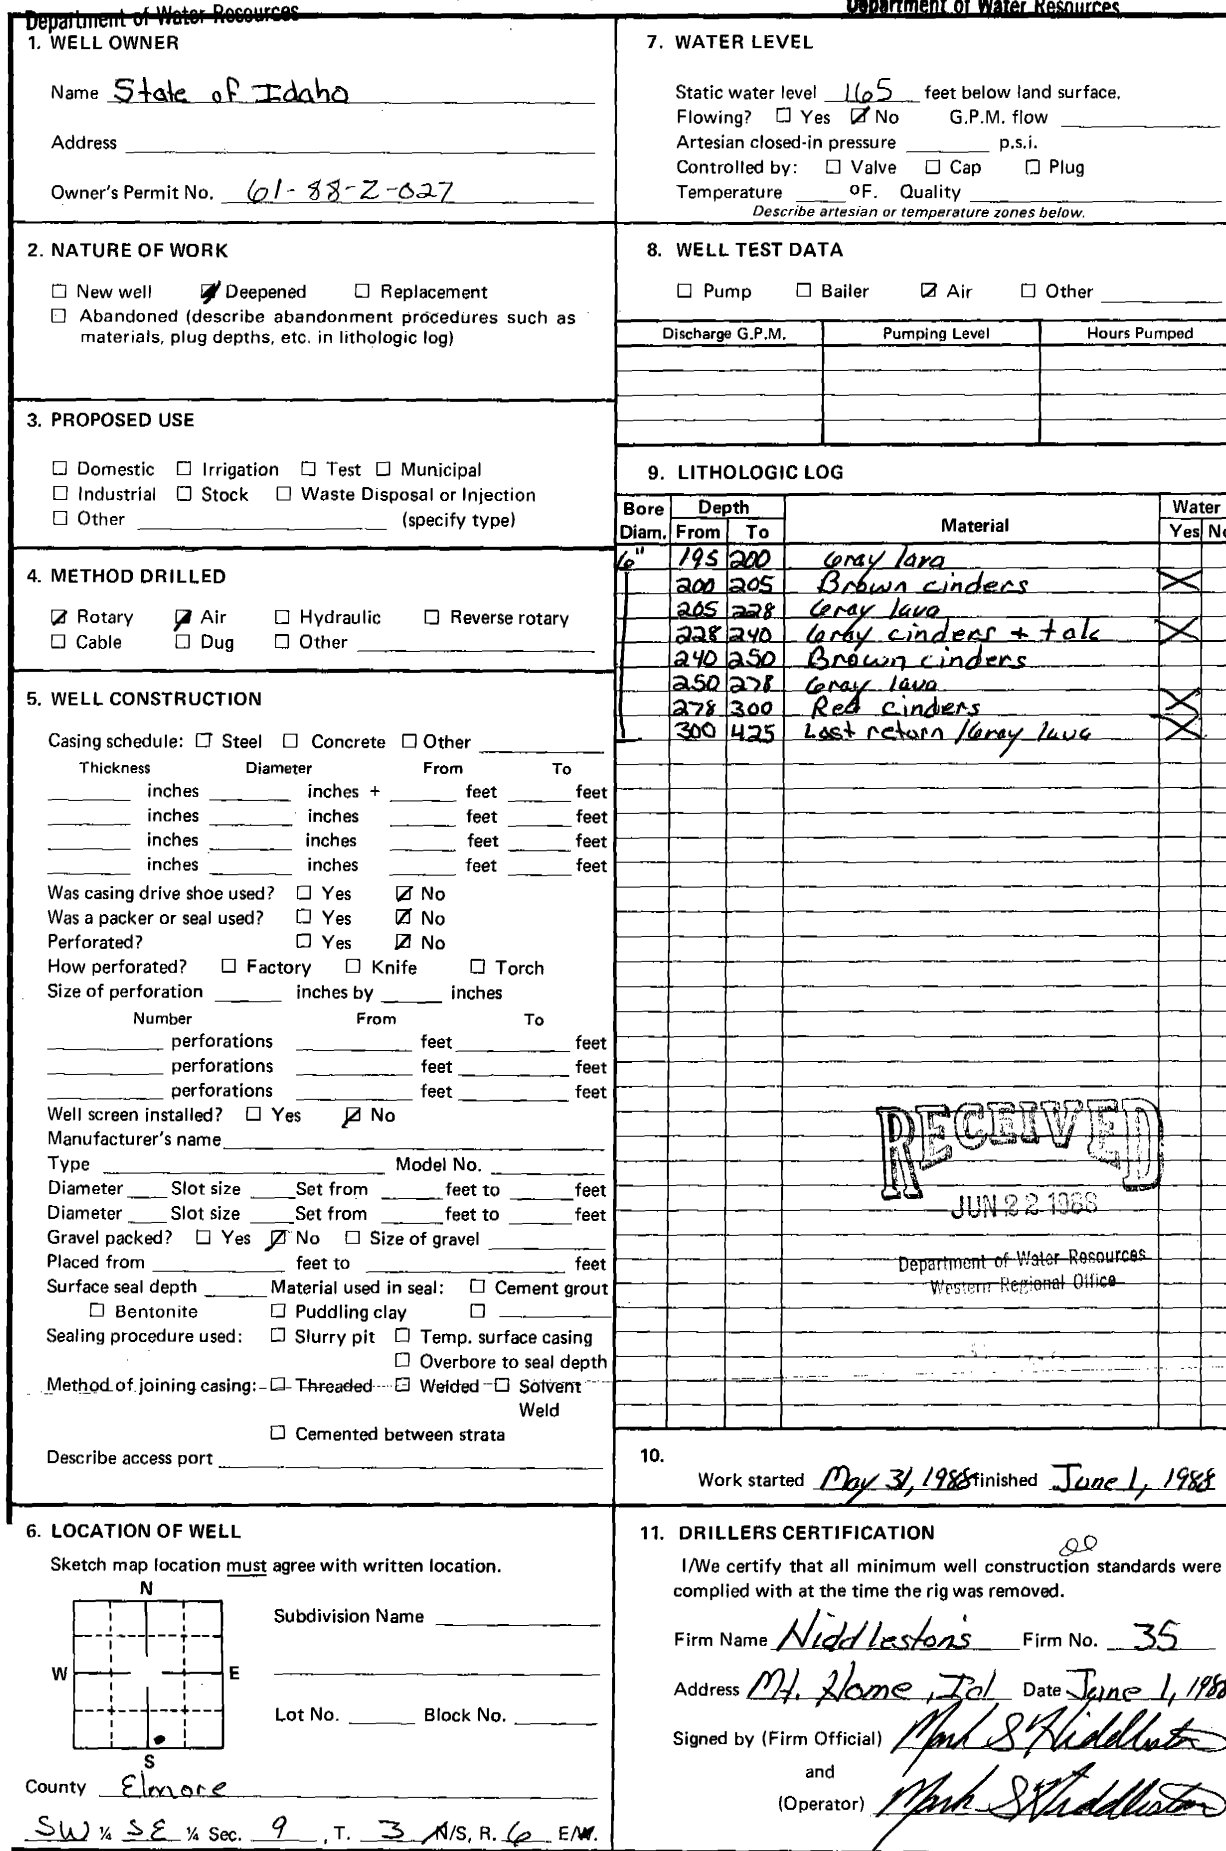 Department of Water Resources
Department of Water Resources
1. WELL OWNER
Name State of Idaho
Address
Owner's Permit No. 61-88-Z-027
2. NATURE OF WORK
New well Deepened Replacement
Abandoned (describe abandonment procedures such as
materials, plug depths, etc. in lithologic log)
3. PROPOSED USE
Domestic Irrigation Test Municipal
Industrial Stock Waste Disposal or Injection
Other (specify type)
4. METHOD DRILLED
Rotary Air Hydraulic Reverse rotary
Cable Dug Other
5. WELL CONSTRUCTION
Casing schedule: Steel Concrete Other
Thickness Diameter From To
inches inches + feet feet
inches inches feet feet
inches inches feet feet
inches inches feet feet
Was casing drive shoe used? Yes No
Was a packer or seal used? Yes No
Perforated? Yes No
How perforated? Factory Knife Torch
Size of perforation inches by inches
Number From To
perforations feet feet
perforations feet feet
perforations feet feet
Well screen installed? Yes No
Manufacturer's name
Type Model No.
Diameter Slot size Set from feet to feet
Diameter Slot size Set from feet to feet
Gravel packed? Yes No Size of gravel
Placed from feet to feet
Surface seal depth Material used in seal: Cement grout
Bentonite Puddling clay
Sealing procedure used: Slurry pit Temp. surface casing
Overbore to seal depth
Method of joining casing: Threaded Welded Solvent
Weld
Cemented between strata
Describe access port
6. LOCATION OF WELL
Sketch map location must agree with written location.
N
W E
S
Subdivision Name
Lot No. Block No.
County Elmore
SW ¼ SE ¼ Sec. 9, T. 3 N/S, R. 6 E/W.
7. WATER LEVEL
Static water level 165 feet below land surface.
Flowing? Yes No G.P.M. flow
Artesian closed-in pressure p.s.i.
Controlled by: Valve Cap Plug
Temperature ºF. Quality
Describe artesian or temperature zones below.
8. WELL TEST DATA
Pump Bailer Air Other
Discharge G.P.M. Pumping Level Hours Pumped
9. LITHOLOGIC LOG
Bore Depth Water
Diam. From To Material Yes No
6" 195 200 Gray lava
200 205 Brown cinders
205 228 Gray lava
228 240 Gray cinders + talc
240 250 Brown cinders
250 278 Gray lava
278 300 Red cinders
300 425 Lost return / Gray lava
RECEIVED
JUN 22 1988
Department of Water Resources
Western Regional Office
10.
Work started May 31, 1988 finished June 1, 1988
11. DRILLERS CERTIFICATION
I/We certify that all minimum well construction standards were
complied with at the time the rig was removed.
Firm Name Hiddleston's Firm No. 35
Address Mt. Home, Id Date June 1, 1988
Signed by (Firm Official) Mark S Hiddleston
and
(Operator) Mark S Hiddleston